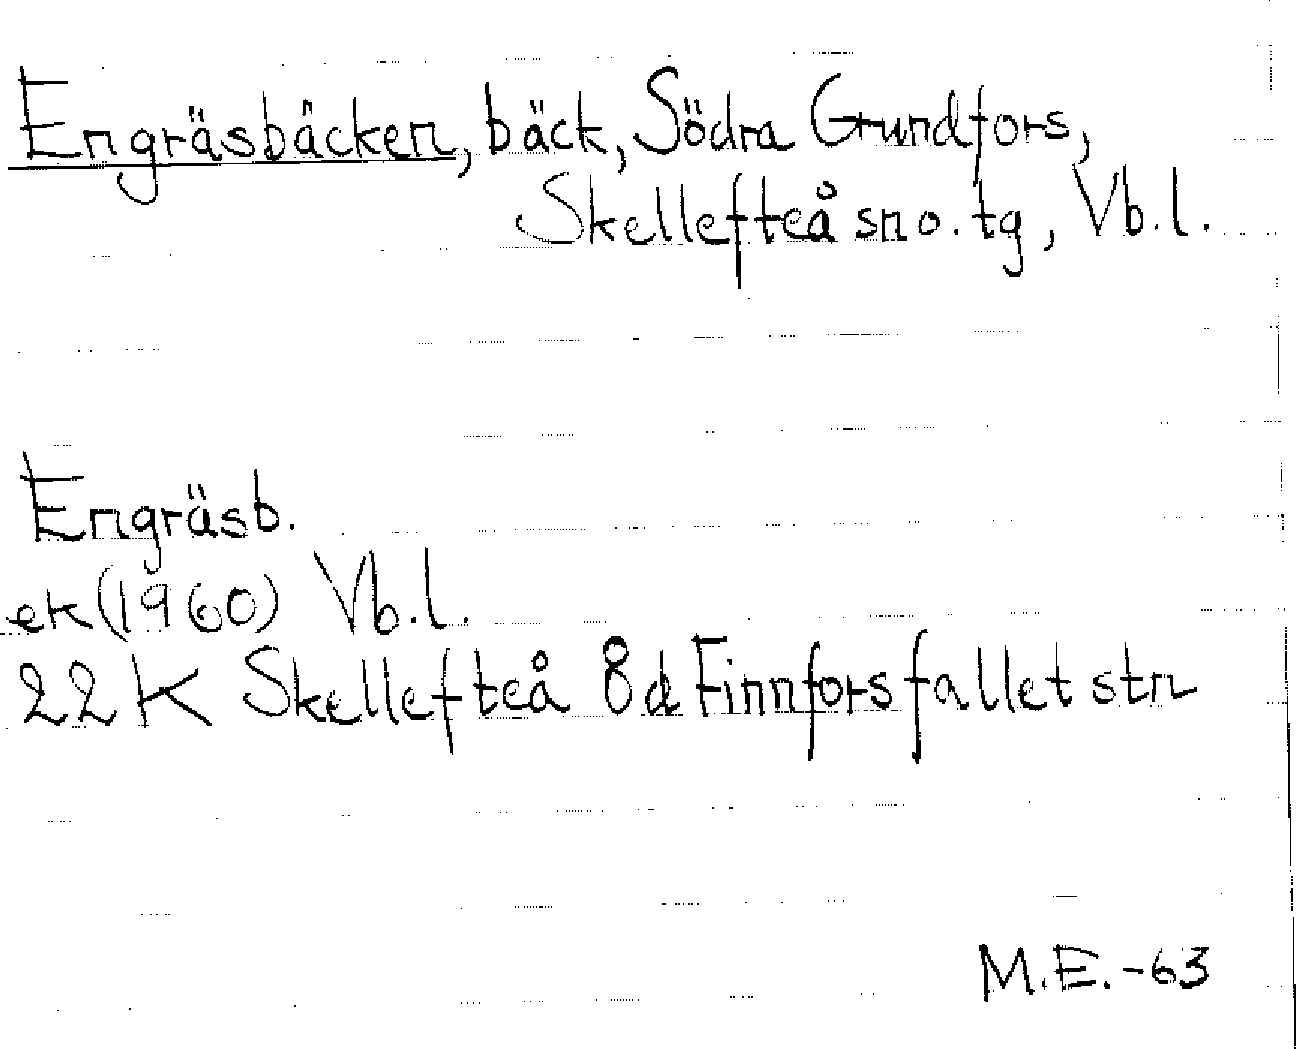 Engräsbäcken, bäck, Södra Grundfors,
Skellefteå sn o. tg, Vb.l.
Engräsb.
ek (1960) Vb.l.
22K Skellefteå 8d Finnforsfallet stn
M.E.-63